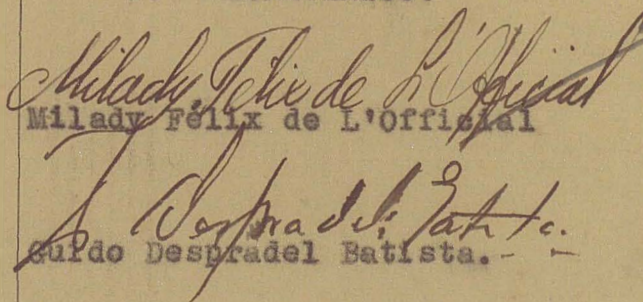 Milady Félix de L'Official
Milady Félix de L'Official
G. Despradel Batista.
Guido Despradel Batista.